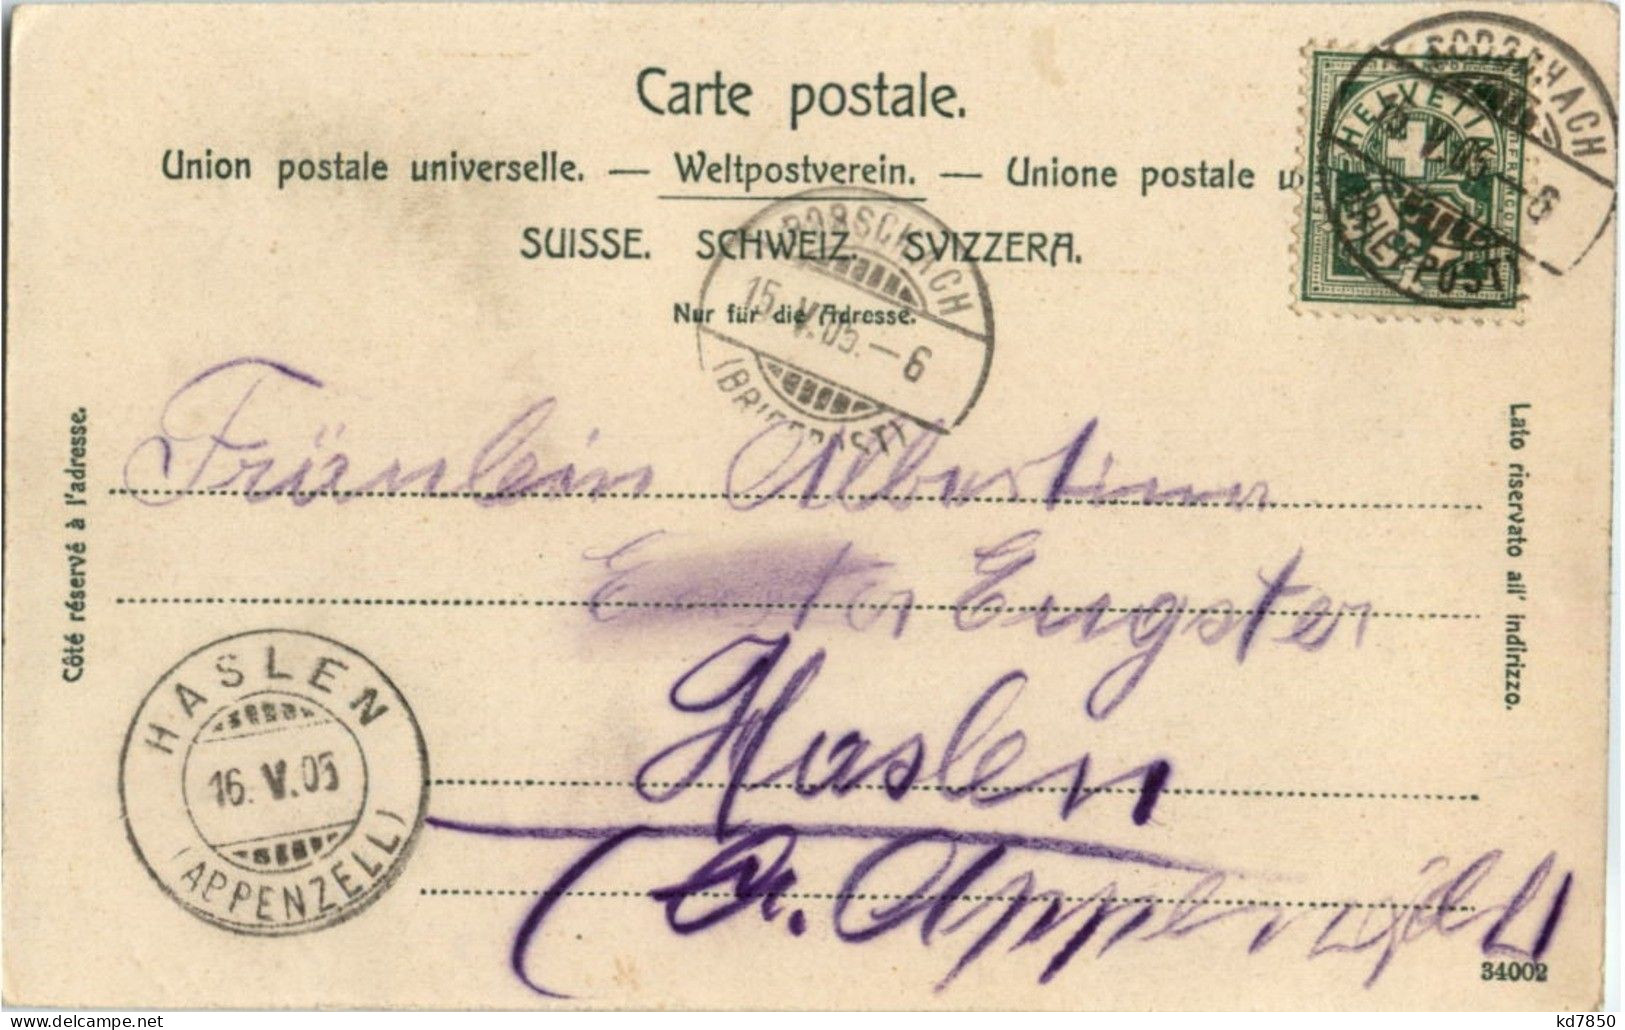 Carte postale.
Union postale universelle. — Weltpostverein. — Unione postale u
SUISSE. SCHWEIZ. SVIZZERA.
Nur für die Adresse.
HELVETIA
RORSCHACH
15.V.05.—6
(BRIEFPOST)
RORSCHACH
15.V.05.—6
(BRIEFPOST)
Côté réservé à l'adresse.
Lato riservato all' indirizzo.
Fräulein Albertina
Engster
Haslen
(Ct. Appenzell
HASLEN
16.V.05
(APPENZELL)
34002
kd7850